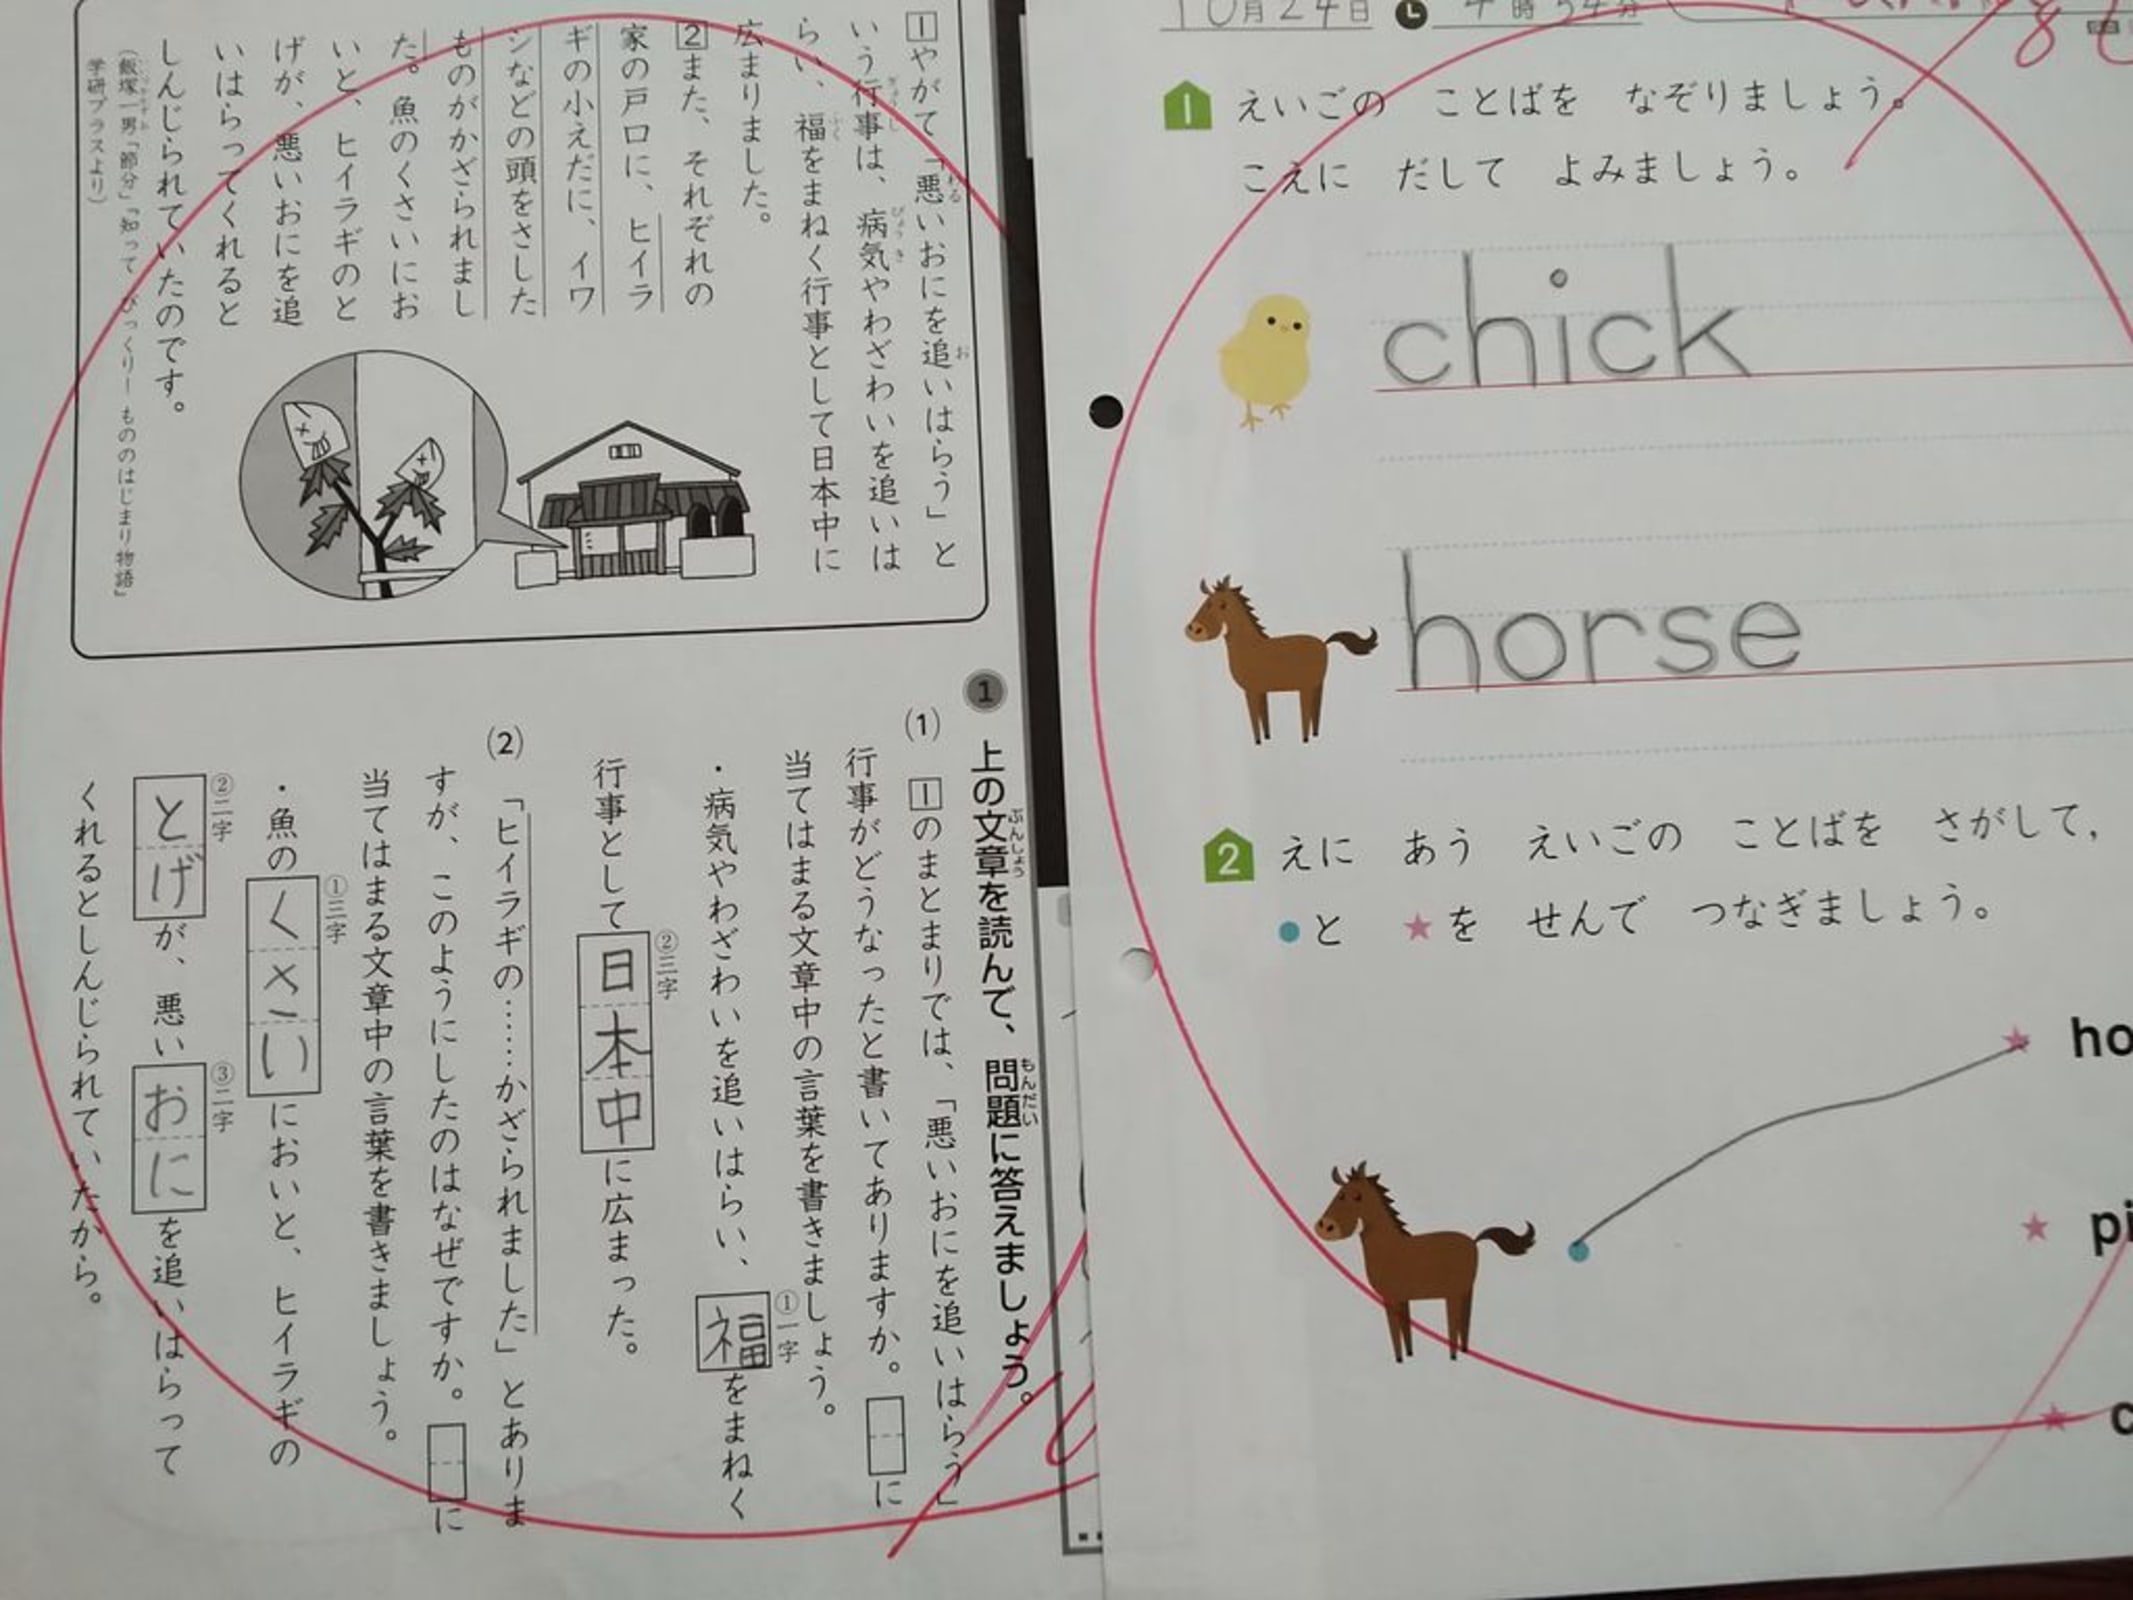 1 やがて「悪いおにを追いはらう」と
いう行事は、病気やわざわいを追いは
らい、福をまねく行事として日本中に
広まりました。
2 また、それぞれの
家の戸口に、ヒイラ
ギの小えだに、イワ
シなどの頭をさした
ものがかざられまし
た。魚のくさいにお
いと、ヒイラギのと
げが、悪いおにを追
いはらってくれると
しんじられていたのです。
(飯塚一男「節分」『知って びっくり! もののはじまり物語』
学研プラスより)
1 上の文章を読んで、問題に答えましょう。
(1) 1のまとまりでは、「悪いおにを追いはらう」
行事がどうなったと書いてありますか。□に
当てはまる文章中の言葉を書きましょう。
・病気やわざわいを追いはらい、①一字 福をまねく
行事として②三字 日本中に広まった。
(2) 「ヒイラギの……かざられました」とありま
すが、このようにしたのはなぜですか。□に
当てはまる文章中の言葉を書きましょう。
・魚の①三字 くさいにおいと、ヒイラギの
②二字 とげが、悪い③二字 おにを追いはらって
くれるとしんじられていたから。
10月24日 4時54分
1 えいごの ことばを なぞりましょう。
こえに だして よみましょう。
chick
horse
2 えに あう えいごの ことばを さがして,
●と ★を せんで つなぎましょう。
ho
pi
c